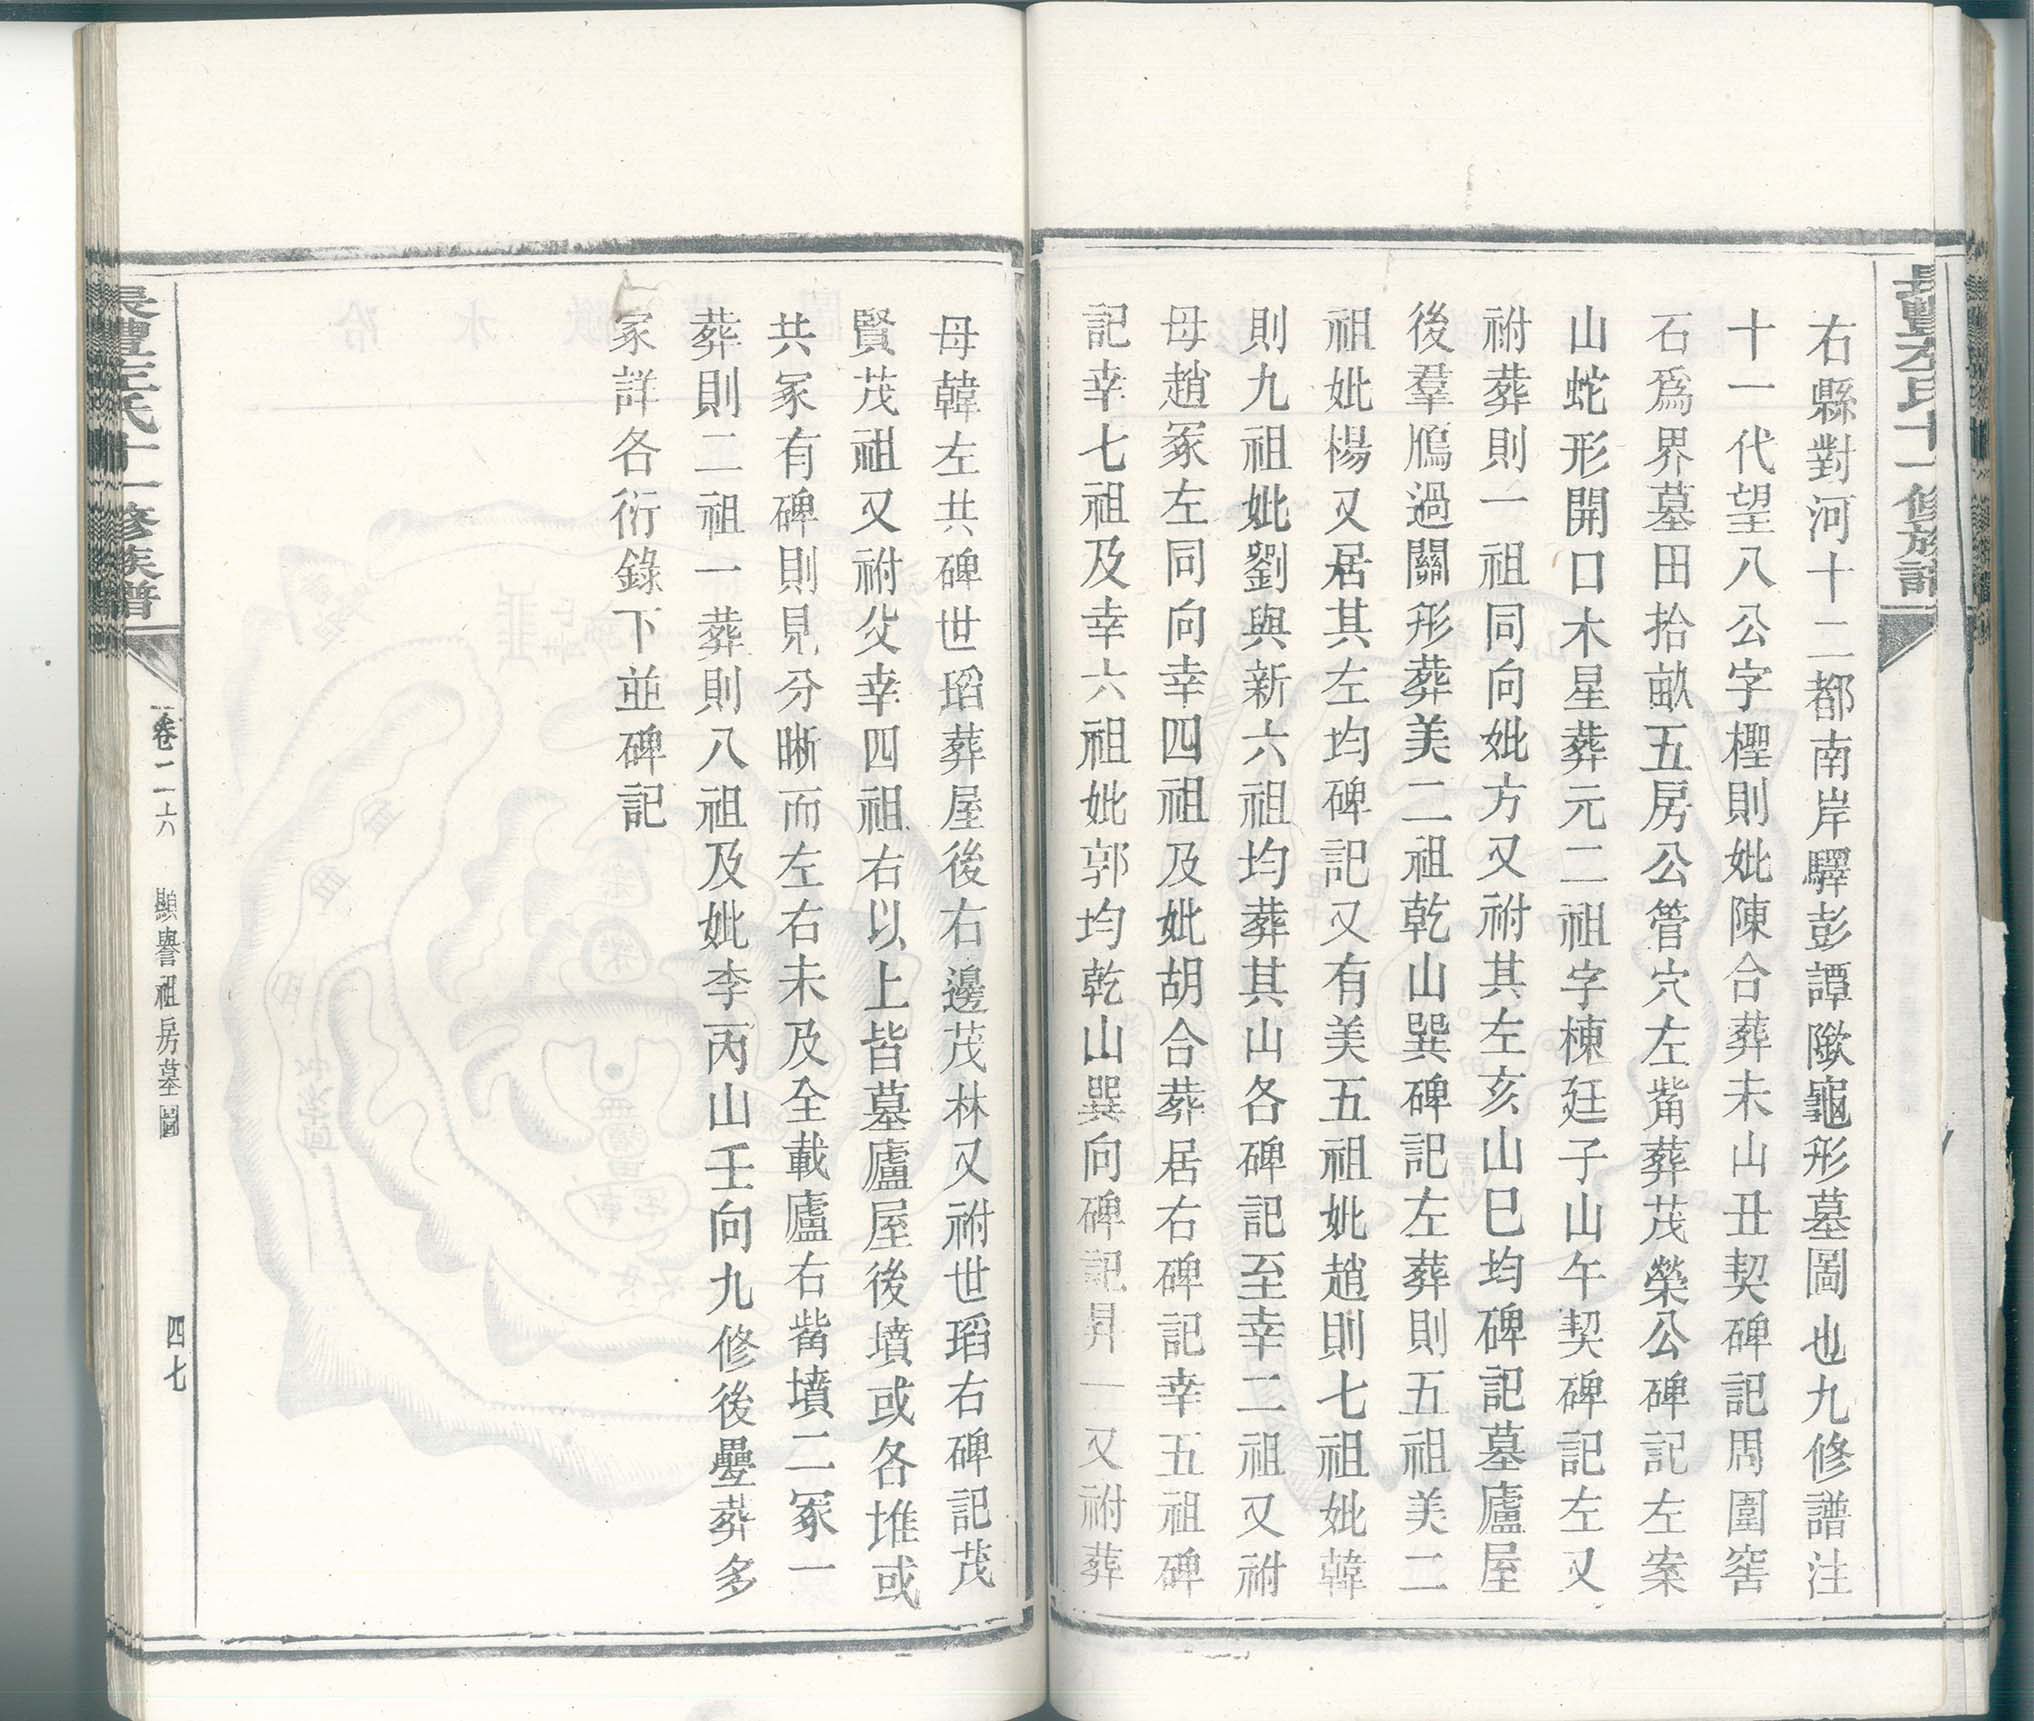 右縣對河十二都南岸驛彭譚歘龜形墓圖也九修譜注
十一代望八公字檉則妣陳合葬未山丑契碑記周圍窖
石爲界墓田拾畝五房公管穴左觜葬茂榮公碑記左案
山蛇形開口木星葬元二祖字棟廷子山午契碑記左又
祔葬則一祖同向妣方又祔其左亥山巳均碑記墓廬屋
後羣鴈過關形葬美二祖乾山巽碑記左葬則五祖美二
祖妣楊又居其左均碑記又有美五祖妣趙則七祖妣韓
則九祖妣劉與新六祖均葬其山各碑記至幸二祖又祔
母趙冢左同向幸四祖及妣胡合葬居右碑記幸五祖碑
記幸七祖及幸六祖妣郭均乾山巽向碑記昇一又祔葬
母韓左共碑世瑫葬屋後右邊茂林又祔世瑫右碑記茂
賢茂祖又祔父幸四祖右以上皆墓廬屋後墳或各堆或
共冢有碑則見分晰而左右未及全載廬右觜墳二冢一
葬則二祖一葬則八祖及妣李丙山壬向九修後疊葬多
冢詳各衍錄下並碑記
左氏十一修族譜
卷二六
顯譽祖房墓圖
四七